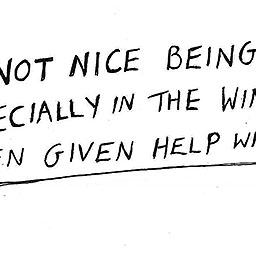 NOT NICE BEING
ECIALLY IN THE WIN
EN GIVEN HELP WI